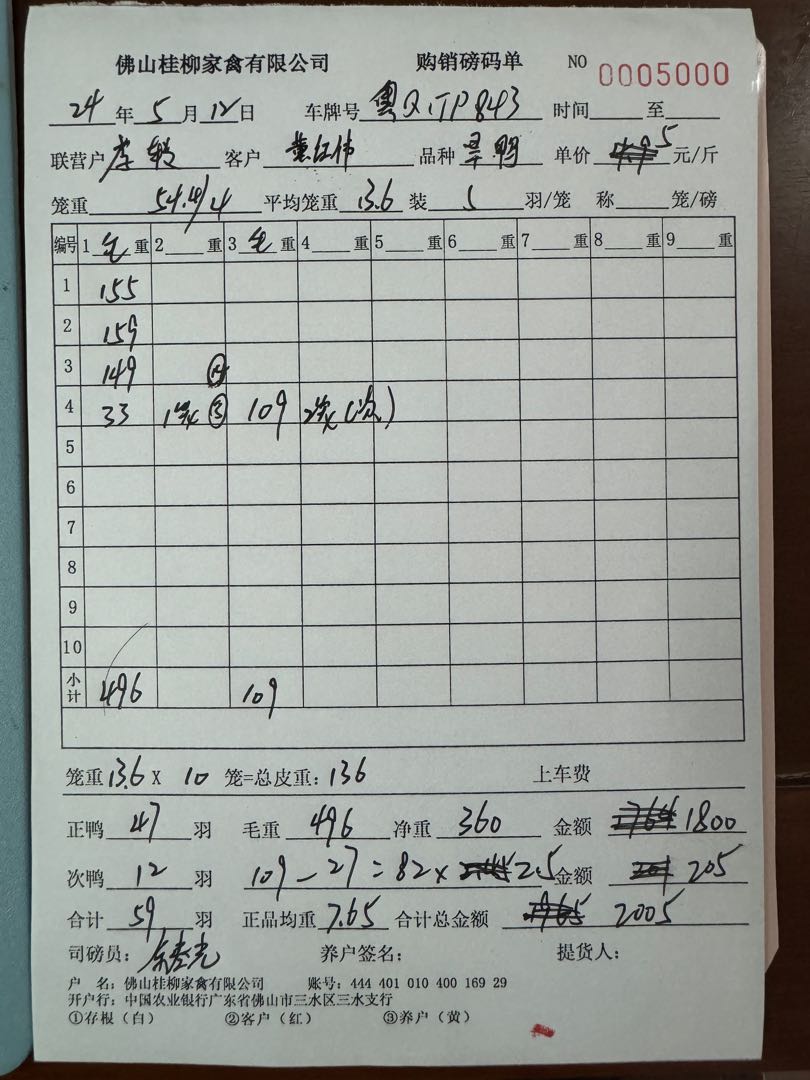 佛山桂柳家禽有限公司 购销磅码单 NO 0005000
24 年 5 月 12 日 车牌号 粤Q 843 时间 至
联营户 李 客户 伟 品种 鸭 单价 5 元/斤
笼重 54.4/4 平均笼重 13.6 装 5 羽/笼 称 笼/磅
编号 1 毛 重 2 重 3 毛 重 4 重 5 重 6 重 7 重 8 重 9 重
1 155
2 159
3 149
4 33 1 ③ 109 2
5
6
7
8
9
10
小计 496 109
笼重 13.6 X 10 笼=总皮重: 136 上车费
正鸭 47 羽 毛重 496 净重 360 金额 1800
次鸭 12 羽 109 - 27 = 82 × 2.5 金额 205
合计 59 羽 正品均重 7.65 合计总金额 2005
司磅员: 养户签名: 提货人:
户 名: 佛山桂柳家禽有限公司 账号: 444 401 010 400 169 29
开户行: 中国农业银行广东省佛山市三水区三水支行
①存根（白） ②客户（红） ③养户（黄）